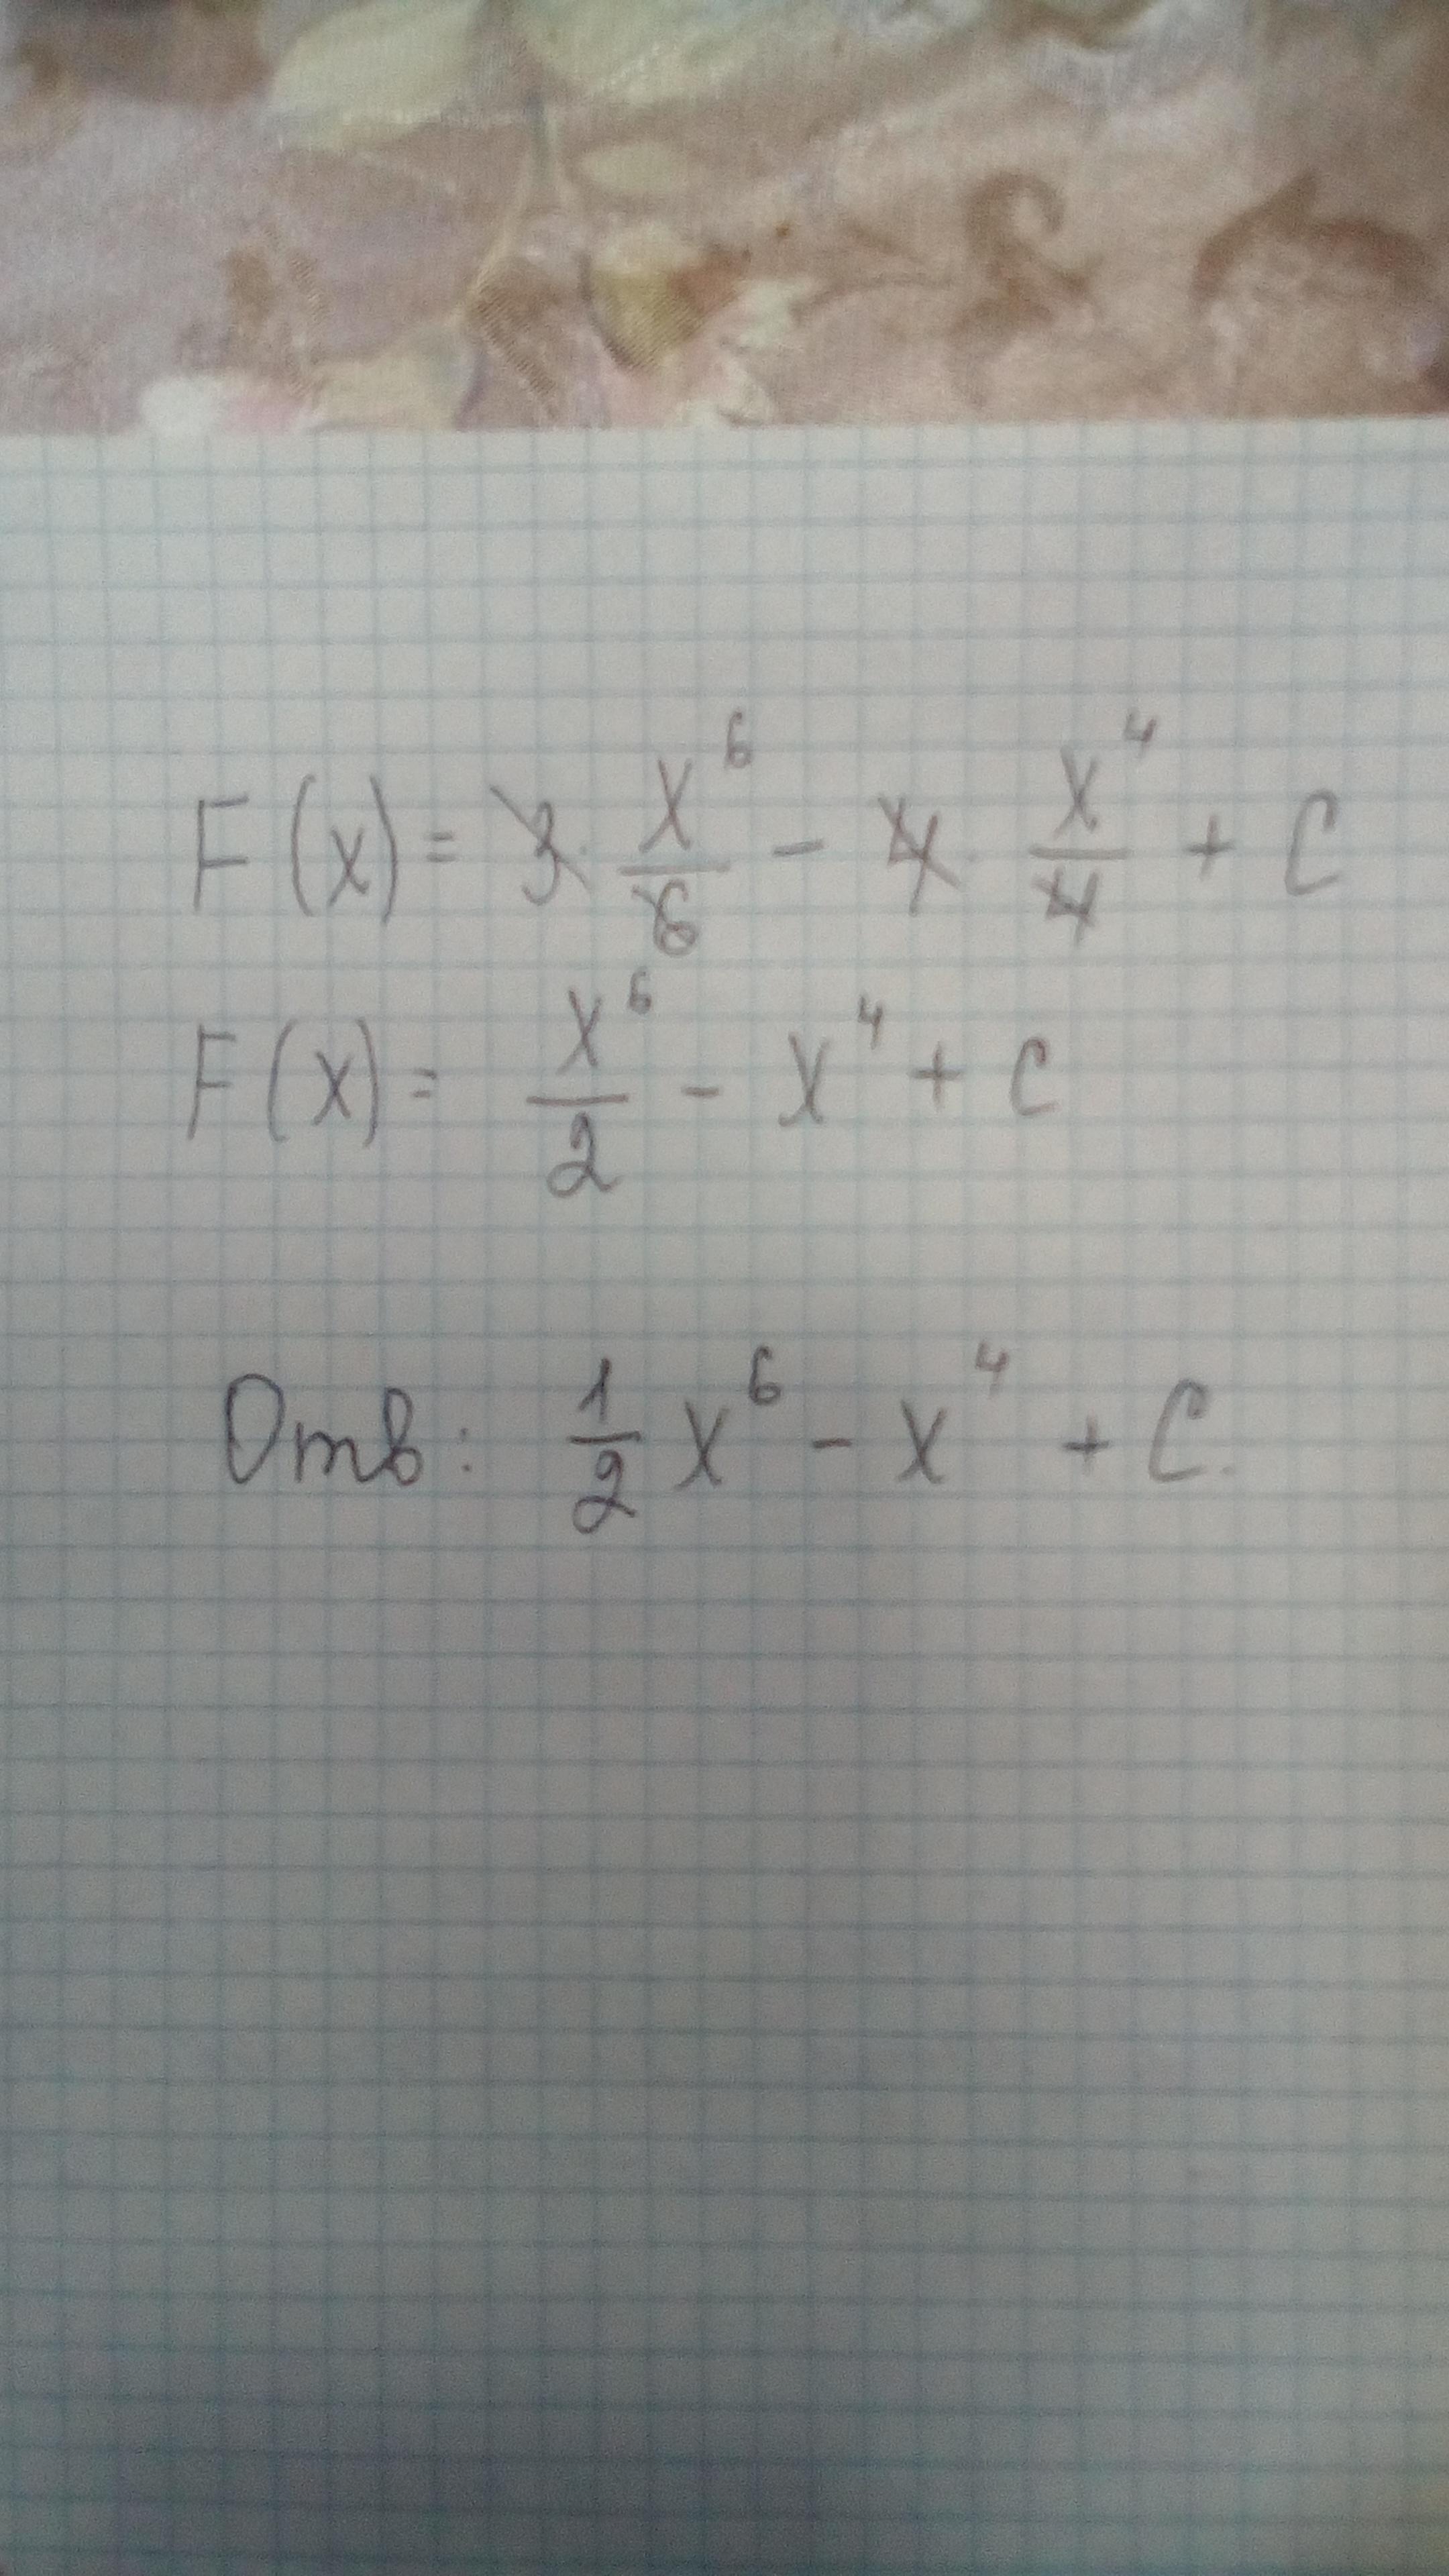 F(x) = 3 · x⁶/6 - 4 · x⁴/4 + C
F(x) = x⁶/2 - x⁴ + C
Отв: 1/2 x⁶ - x⁴ + C.